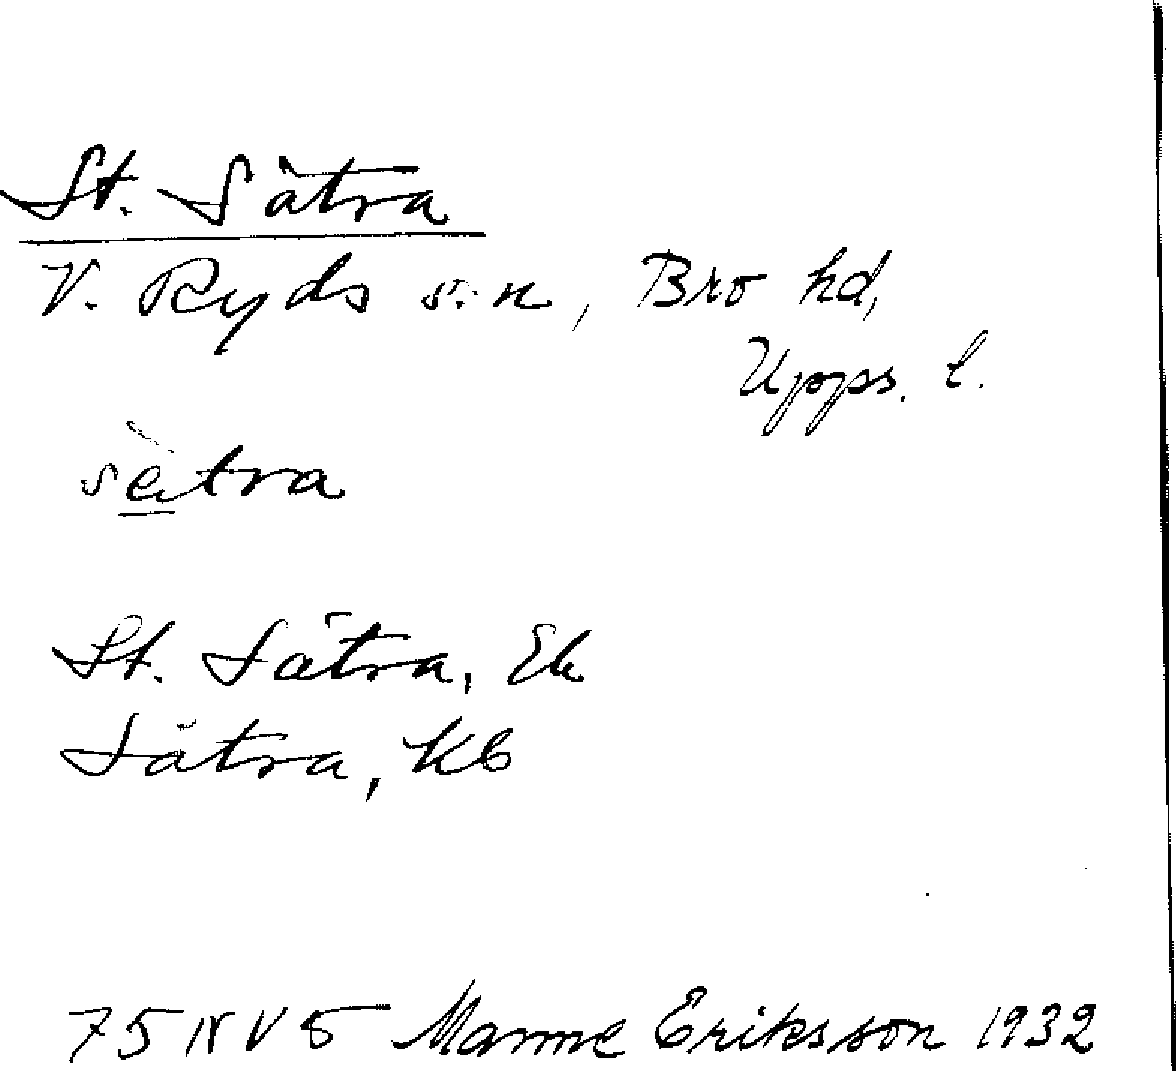 St. Sätra
V. Ryds sn, Bro hd,
Upps. l.
sètra
St. Sätra, Ek
Sätra, Kb
75 NV 5 Manne Eriksson 1932